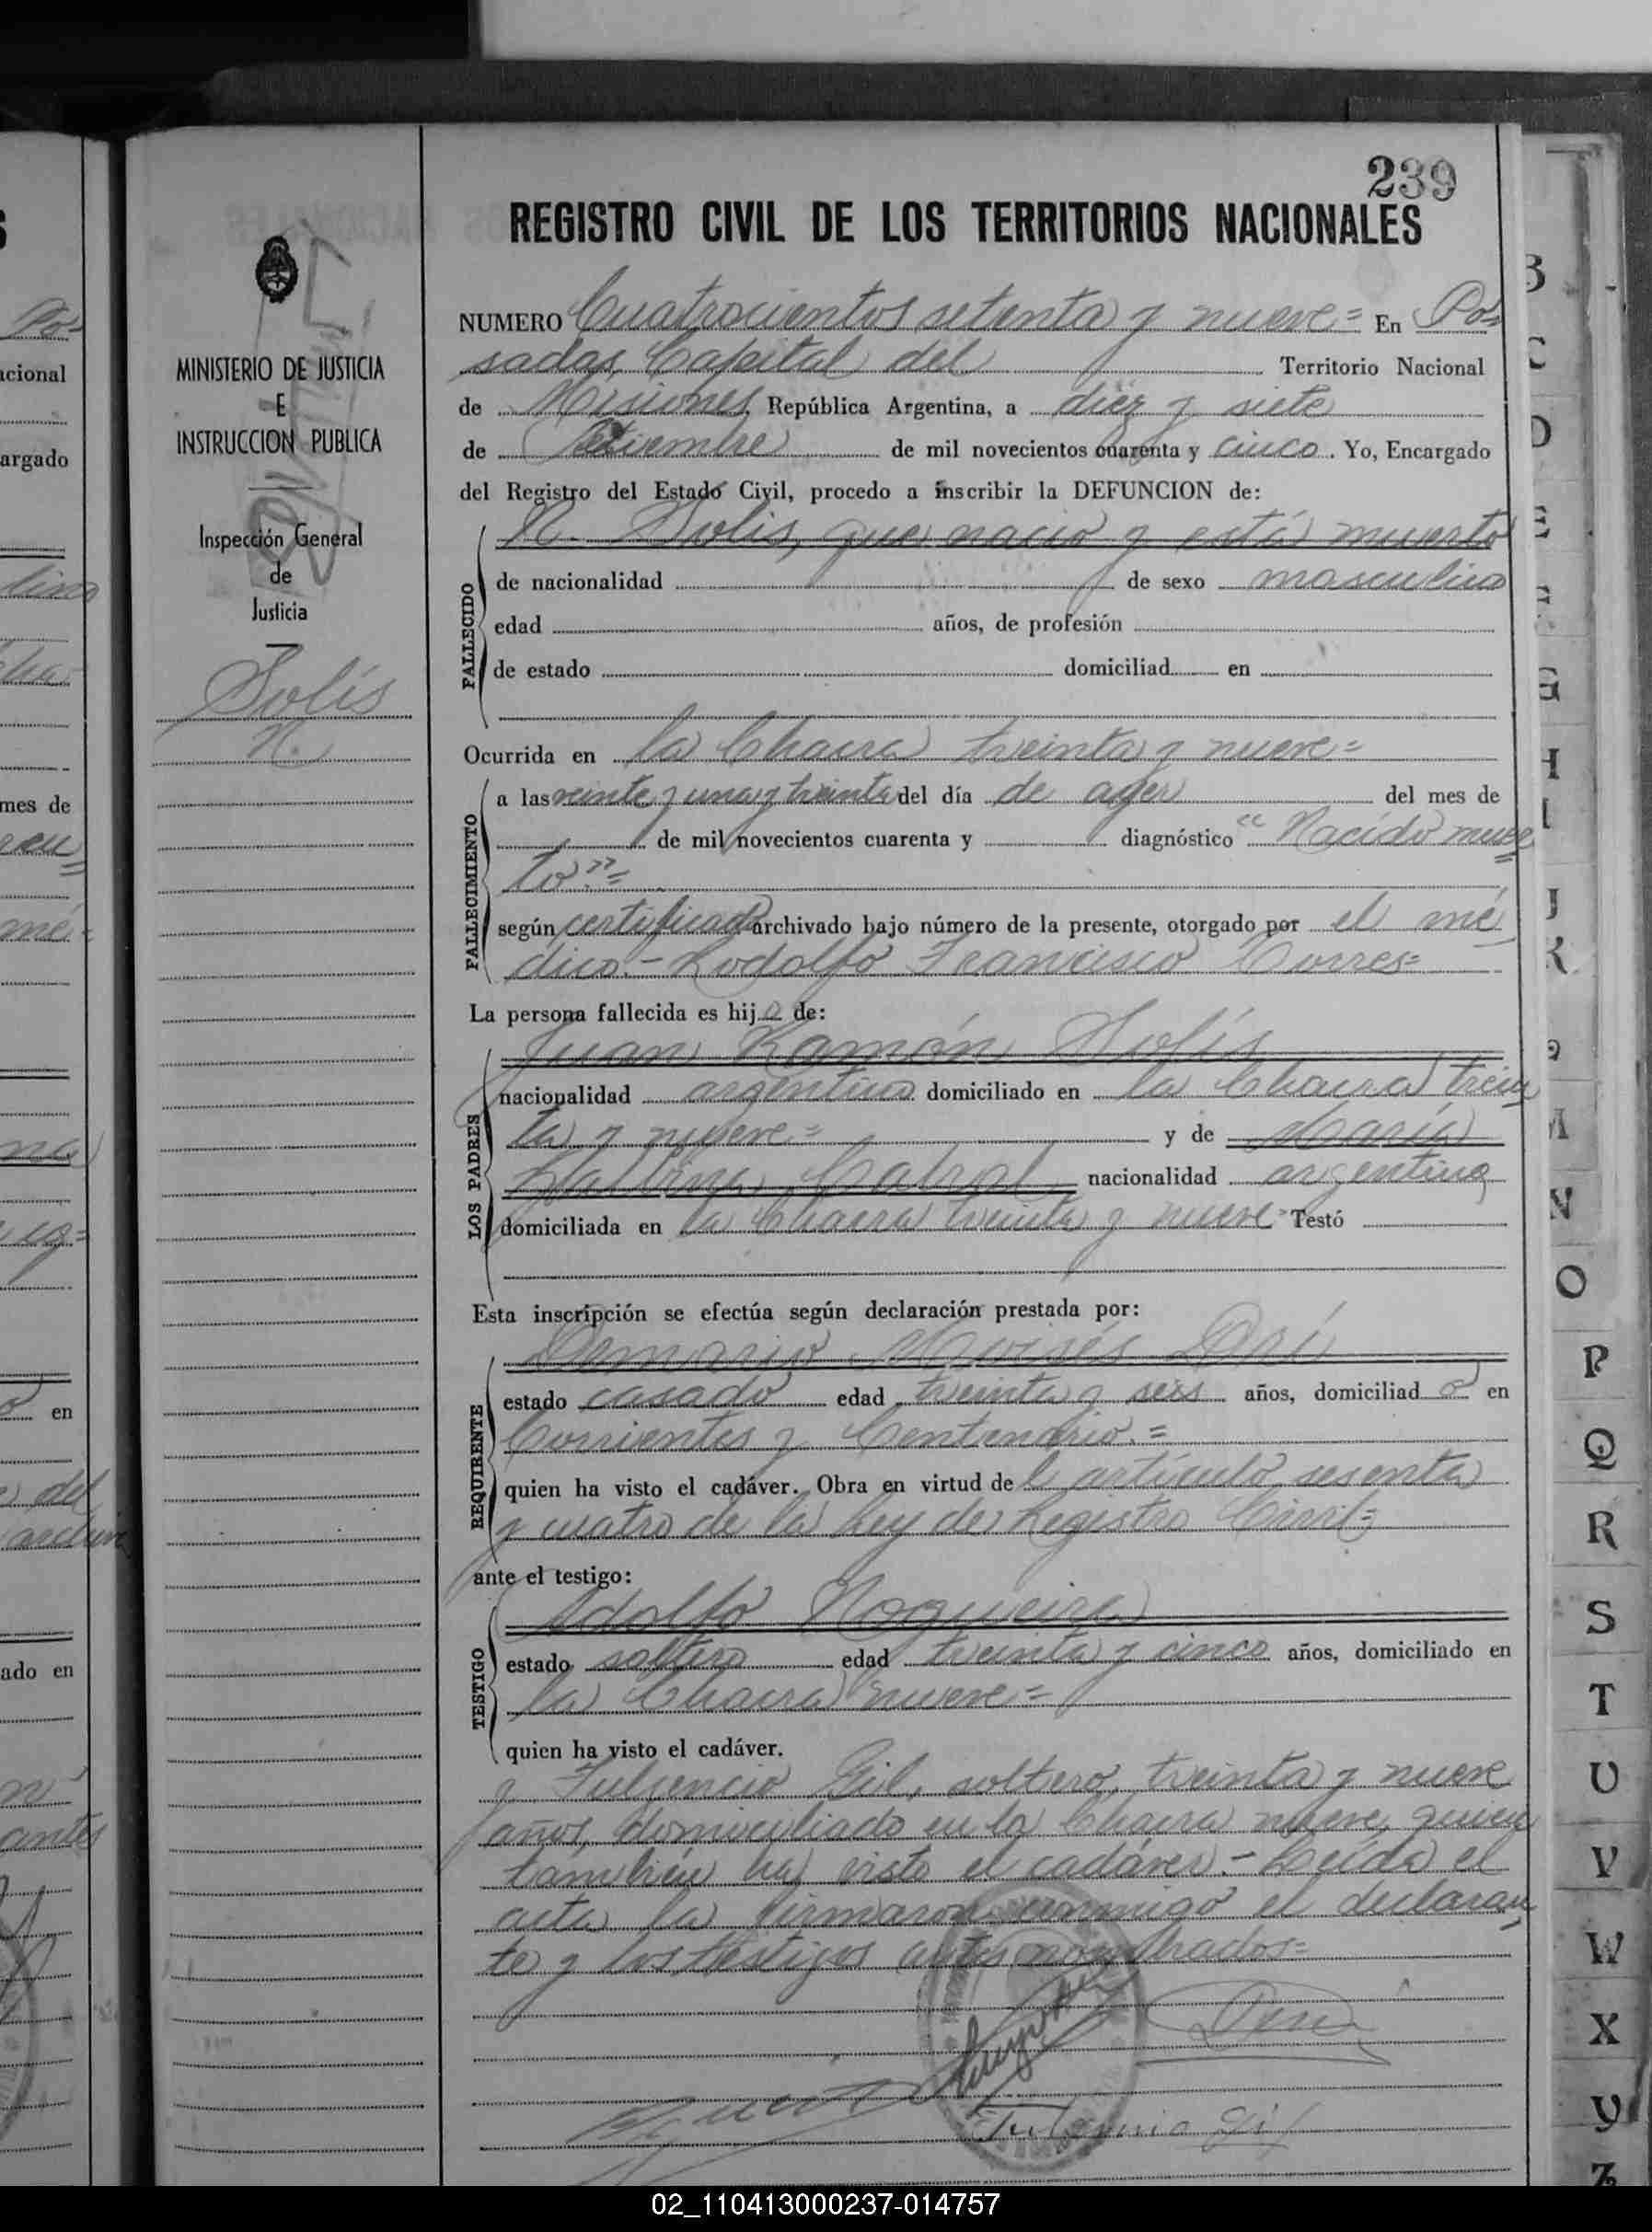 239
REGISTRO CIVIL DE LOS TERRITORIOS NACIONALES
MINISTERIO DE JUSTICIA
E
INSTRUCCION PUBLICA
Inspección General
de
Justicia
Solís
N.
NUMERO Cuatrocientos setenta y nueve= En Po=
sadas, Capital del Territorio Nacional
de Misiones, República Argentina, a diez y siete
de de mil novecientos cuarenta y cinco. Yo, Encargado
del Registro del Estado Civil, procedo a inscribir la DEFUNCION de:
N. Solis, que nació y está muerto
FALLECIDO
de nacionalidad de sexo masculino
edad años, de profesión
de estado domiciliad en
Ocurrida en la Chacra treinta y nueve=
FALLECIMIENTO
a las veinte y una y treinta del día de ayer del mes de
de mil novecientos cuarenta y diagnóstico "Nacido muer=
to"=
según certificado archivado bajo número de la presente, otorgado por el mé
dico.- Rodolfo Francisco Torres=
La persona fallecida es hijo de:
LOS PADRES
Juan Ramón Solís
nacionalidad argentino domiciliado en la Chacra trein
ta y nueve= y de María
Cabral nacionalidad argentina
domiciliada en la Chacra treinta y nueve= Testó
Esta inscripción se efectúa según declaración prestada por:
REQUIRENTE
Moisés Drí
estado casado edad treinta y seis años, domiciliado en
Corrientes y Centenario.=
quien ha visto el cadáver. Obra en virtud del artículo sesenta
y cuatro de la Ley de Registro Civil=
ante el testigo:
TESTIGO
Adolfo Nogueira
estado soltero edad treinta y cinco años, domiciliado en
la Chacra nueve=
quien ha visto el cadáver.
y Fulgencio Gil, soltero, treinta y nueve
años, domiciliado en la Chacra nueve, quien
también ha visto el cadáver.- Leída el
acta la firmaron conmigo el declaran
te y los testigos antes nombrados=
Fulgencio Gil
B
C
D
E
F
G
H
I
J
K
M
N
O
P
Q
R
S
T
U
V
W
X
Y
Z
02_110413000237-014757